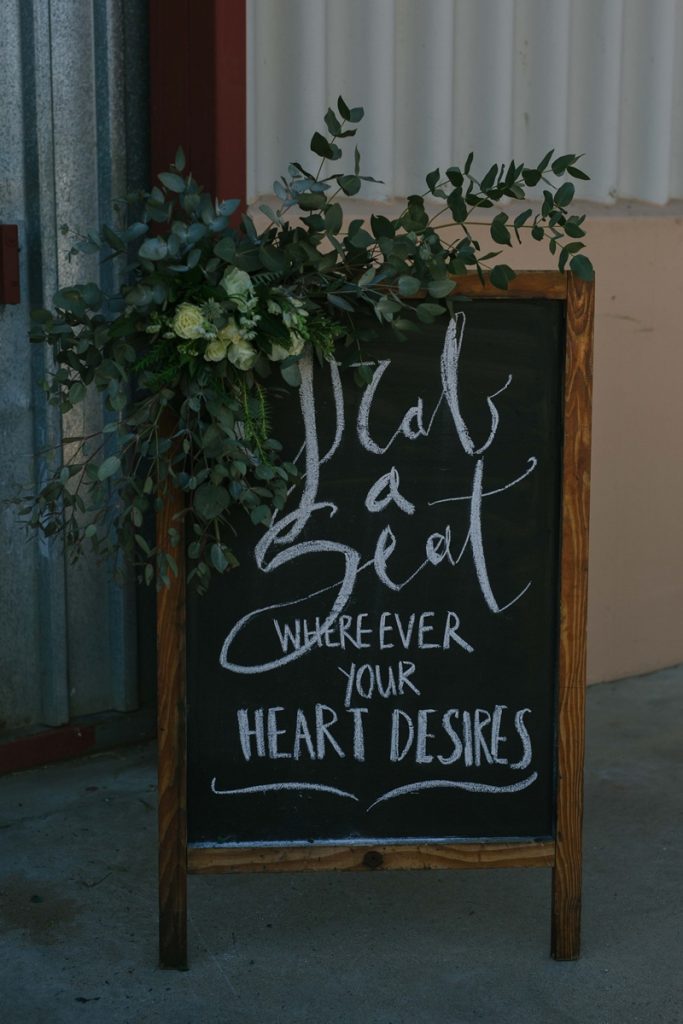 Grab
a
Seat
WHEREEVER
YOUR
HEART DESIRES